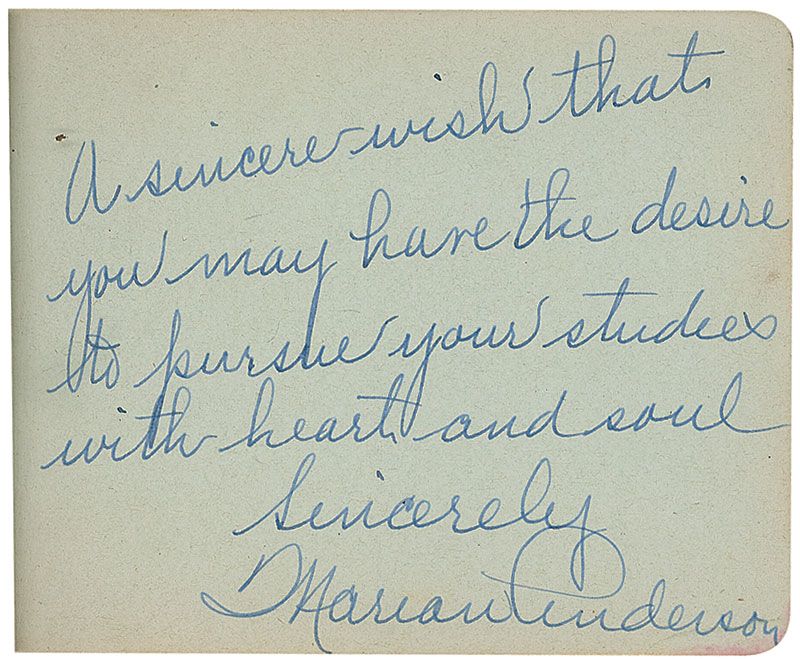 A sincere wish that
you may have the desire
to pursue your studies
with heart and soul
Sincerely
Marian Anderson